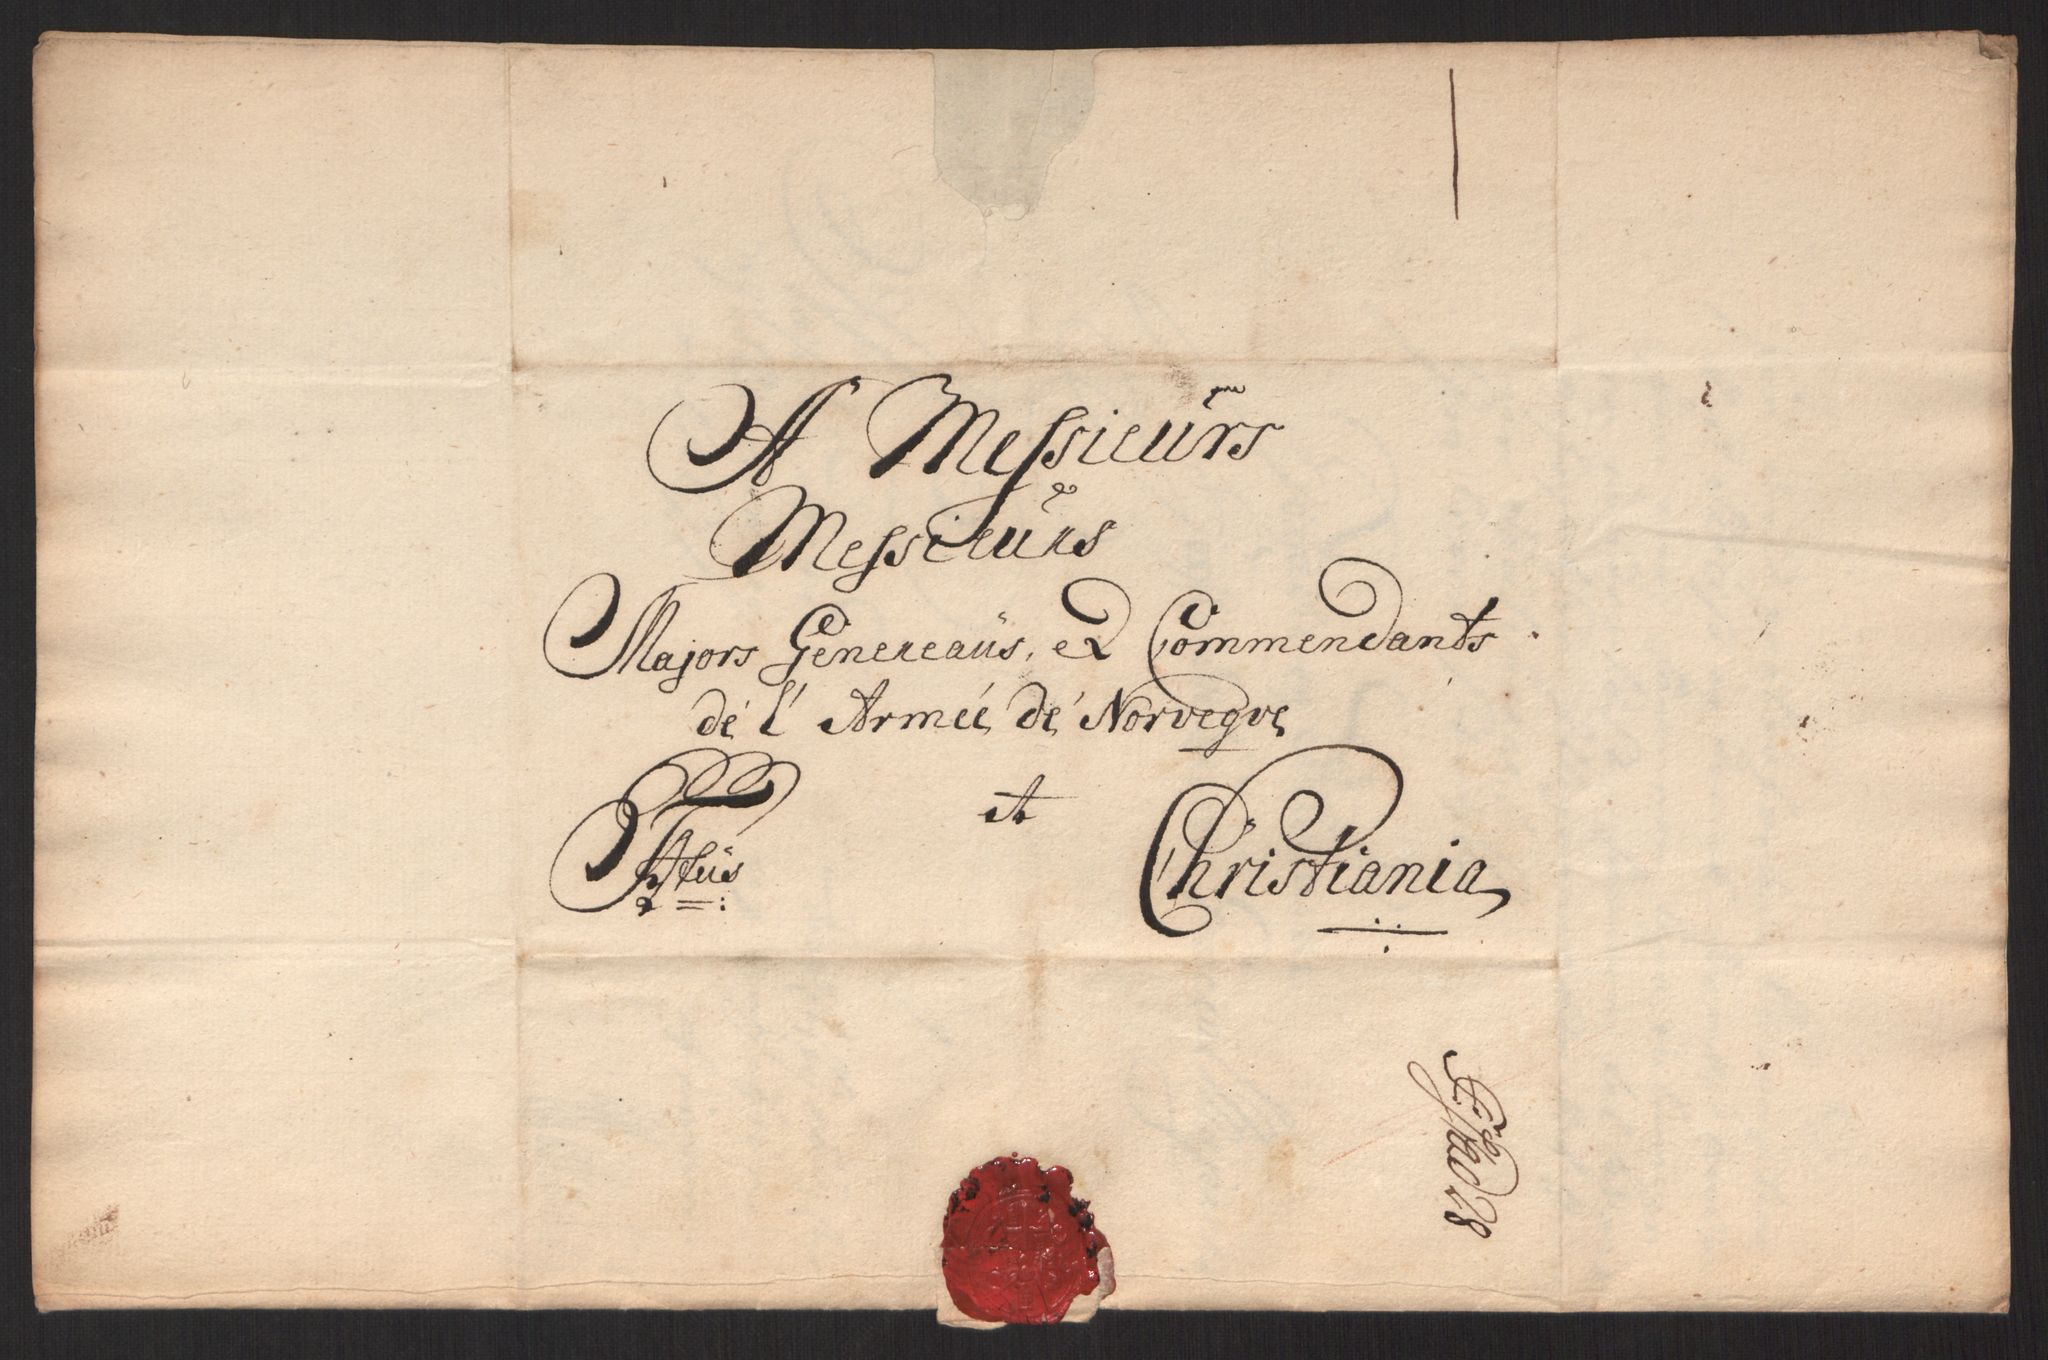 A Messieurs
Messieurs
Majors Genereaüs, et Commendants
dé l' Armée dé Norvegve
A
Christiania